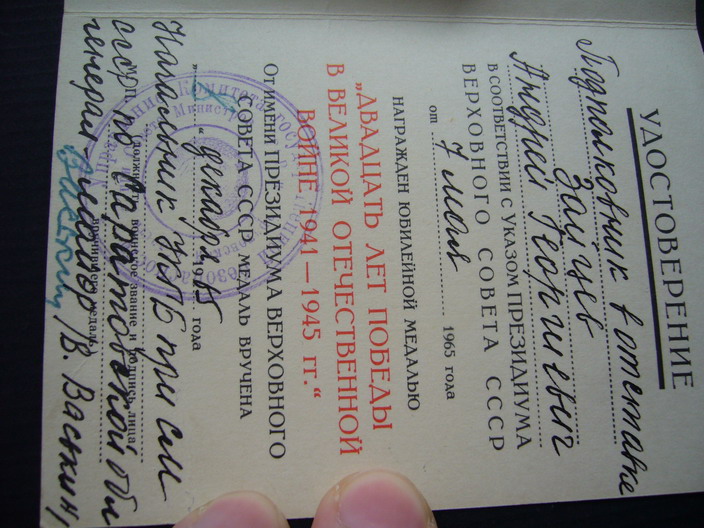 УДОСТОВЕРЕНИЕ
Подполковник в отставке
Зайцев
Андрей Георгиевич
В СООТВЕТСТВИИ С УКАЗОМ ПРЕЗИДИУМА
ВЕРХОВНОГО СОВЕТА СССР
от 7 мая 1965 года
НАГРАЖДЕН ЮБИЛЕЙНОЙ МЕДАЛЬЮ
„ДВАДЦАТЬ ЛЕТ ПОБЕДЫ
В ВЕЛИКОЙ ОТЕЧЕСТВЕННОЙ
ВОЙНЕ 1941—1945 гг.“
ОТ ИМЕНИ ПРЕЗИДИУМА ВЕРХОВНОГО
СОВЕТА СССР МЕДАЛЬ ВРУЧЕНА
декабря 65 года
Начальник УКГБ при СМ
СССР по Саратовской обл
должность, воинское звание и подпись лица,
вручившего медаль
генерал-майор /В. Васькин/